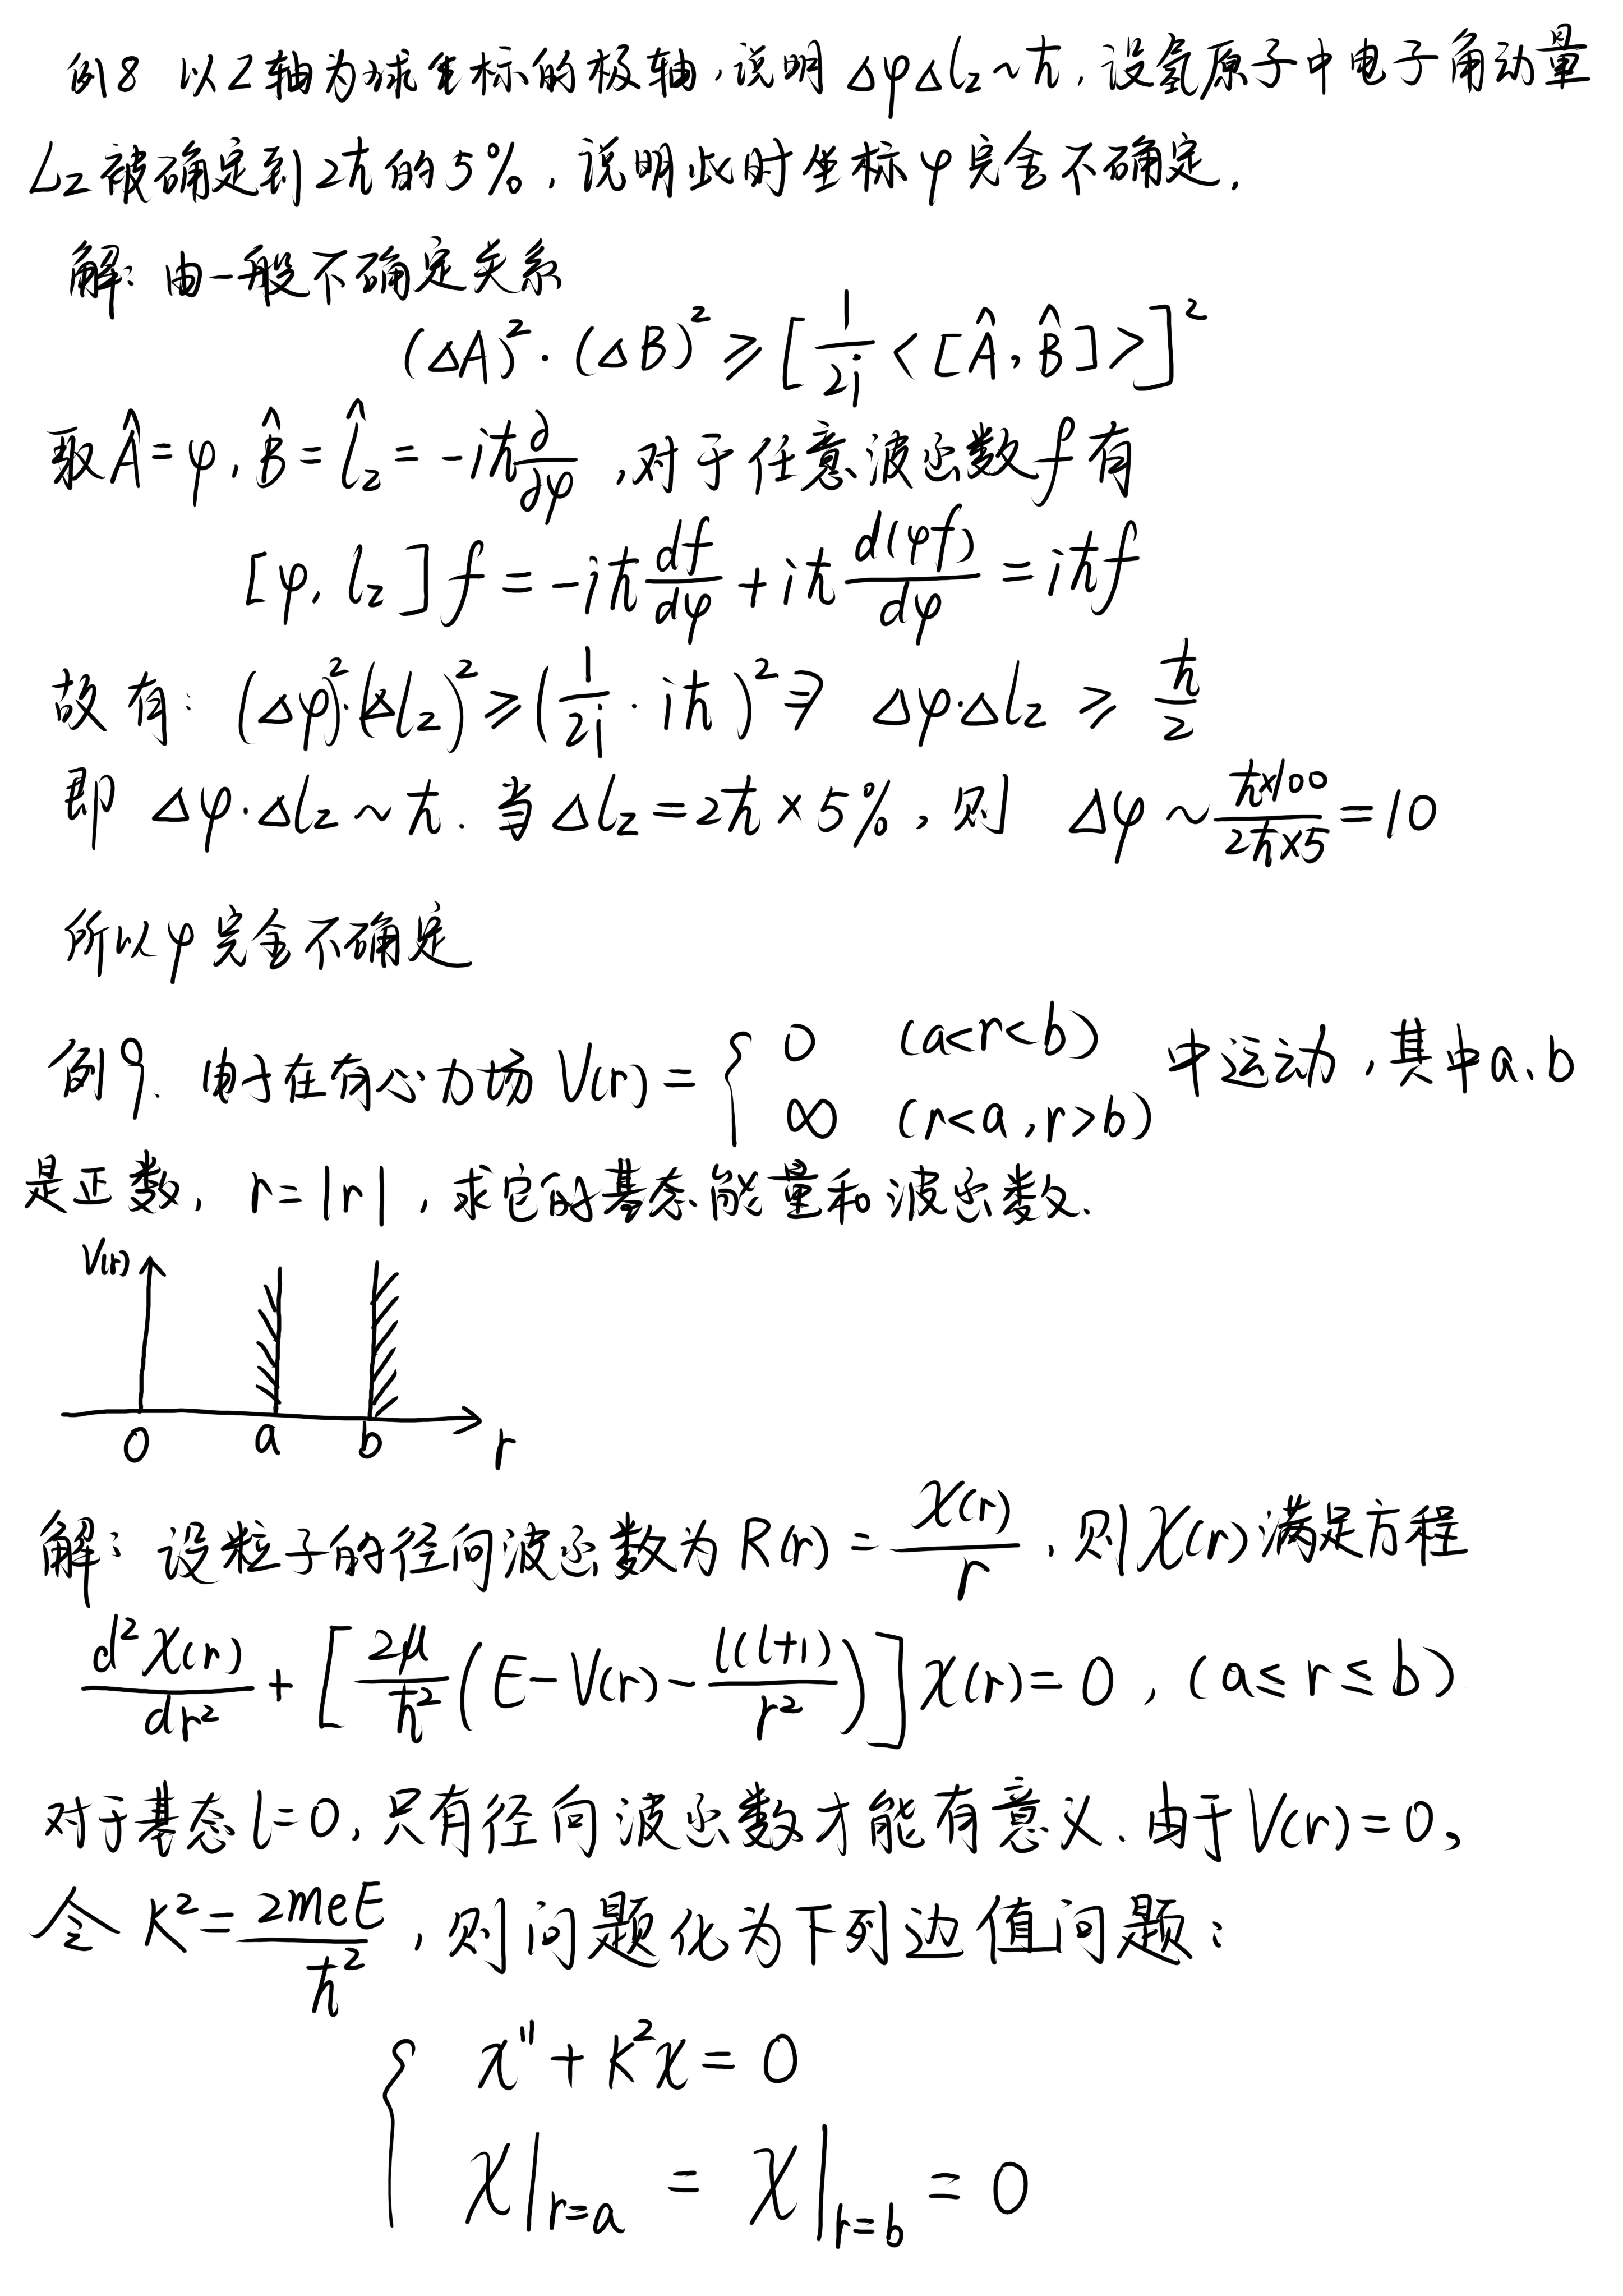 例8 以Z轴为球坐标的极轴,说明 △φ△l_z~ħ,设氢原子中电子角动量
L_z被确定到2ħ的5%,说明此时坐标φ完全不确定.
解:由一般不确定关系
(△A)²·(△B)²≥[1/2i<[Â,B̂]>]²
取Â=φ,B̂=l̂_z=-iħ∂/∂φ,对于任意波函数f有
[φ,l_z]f=-iħ df/dφ+iħ d(φf)/dφ=iħf
故有:(△φ)²·(△l_z)²≥(1/2i·iħ)²⇒ △φ·△l_z≥ħ/2
即 △φ·△l_z~ħ.当△l_z=2ħ×5%,则 △φ~ħ×100/2ħ×5=10
所以φ完全不确定
例9.电子在有心力场V(r)={0 (a<r<b) 中运动,其中a、b
∞ (r<a,r>b)
是正数,r=|r|,求它的基态能量和波函数.
V(r)
0 a b r
解:设粒子的径向波函数为R(r)=χ(r)/r,则χ(r)满足方程
d²χ(r)/dr²+[2μ/ħ²(E-V(r)-l(l+1)/r²)]χ(r)=0,(a≤r≤b)
对于基态l=0,只有径向波函数才能有意义.由于V(r)=0,
令K²=2meE/ħ²,则问题化为下列边值问题:
{χ''+K²χ=0
χ|r=a=χ|r=b=0